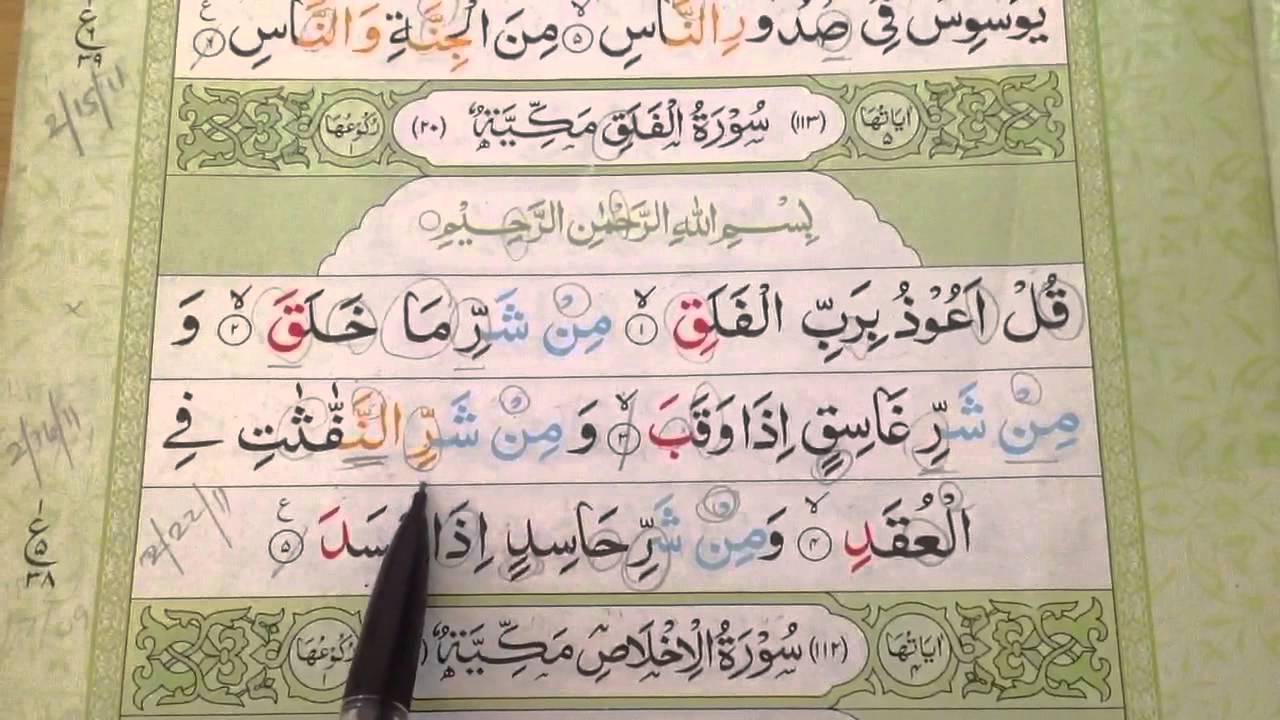 يُوَسْوِسُ فِيْ صُدُوْرِ النَّاسِ ۵ مِنَ الْجِنَّةِ وَالنَّاسِ
ع ٦ ٣٩
2/15/11
اٰيَاتُهَا ۵ (١١٣) سُوْرَةُ الْفَلَقِ مَكِّيَّةٌ (٢٠) رُكُوْعُهَا
بِسْمِ اللّٰهِ الرَّحْمٰنِ الرَّحِيْمِ
قُلْ اَعُوْذُ بِرَبِّ الْفَلَقِ ١ مِنْ شَرِّ مَا خَلَقَ ٢ وَ
مِنْ شَرِّ غَاسِقٍ اِذَا وَقَبَ ٣ وَ مِنْ شَرِّ النَّفّٰثٰتِ فِي
2/16/11
الْعُقَدِ ۴ وَمِنْ شَرِّ حَاسِدٍ اِذَا حَسَدَ ۵
2/22/11
ع ۵ ٣٨
اٰيَاتُهَا ۴ (١١٢) سُوْرَةُ الْاِخْلَاصِ مَكِّيَّةٌ رُكُوْعُهَا